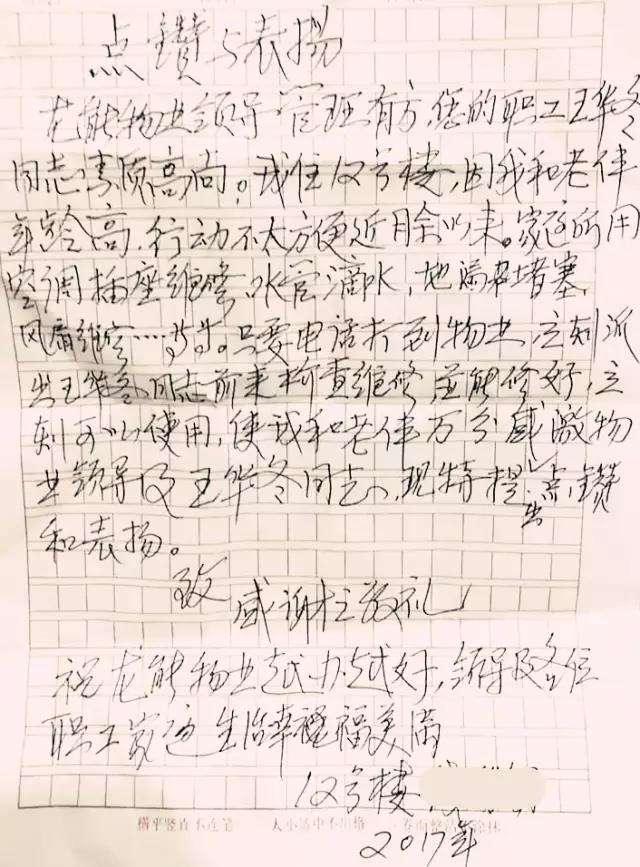 点鑽与表揚
龙能物业领导管理有方,您的职工王华冬
同志素质高尚。我住12号楼,因我和老伴
年龄高,行动不太方便近月余以来。家庭所用
空调插座维修,水管滴水,地漏堵塞,
风扇维修……等等。只要电话打到物业,立刻派
出王华冬同志前来检查维修并能修好,立
刻可以使用,使我和老伴万分感激物
业领导及王华冬同志,现特提出点鑽
和表扬。
致
感谢
敬礼
祝龙能物业越办越好,领导及各位
职工家庭生活幸福美满
12号楼
2017年
横平竖直不连笔 大小适中不出格 卷面整洁 涂抹